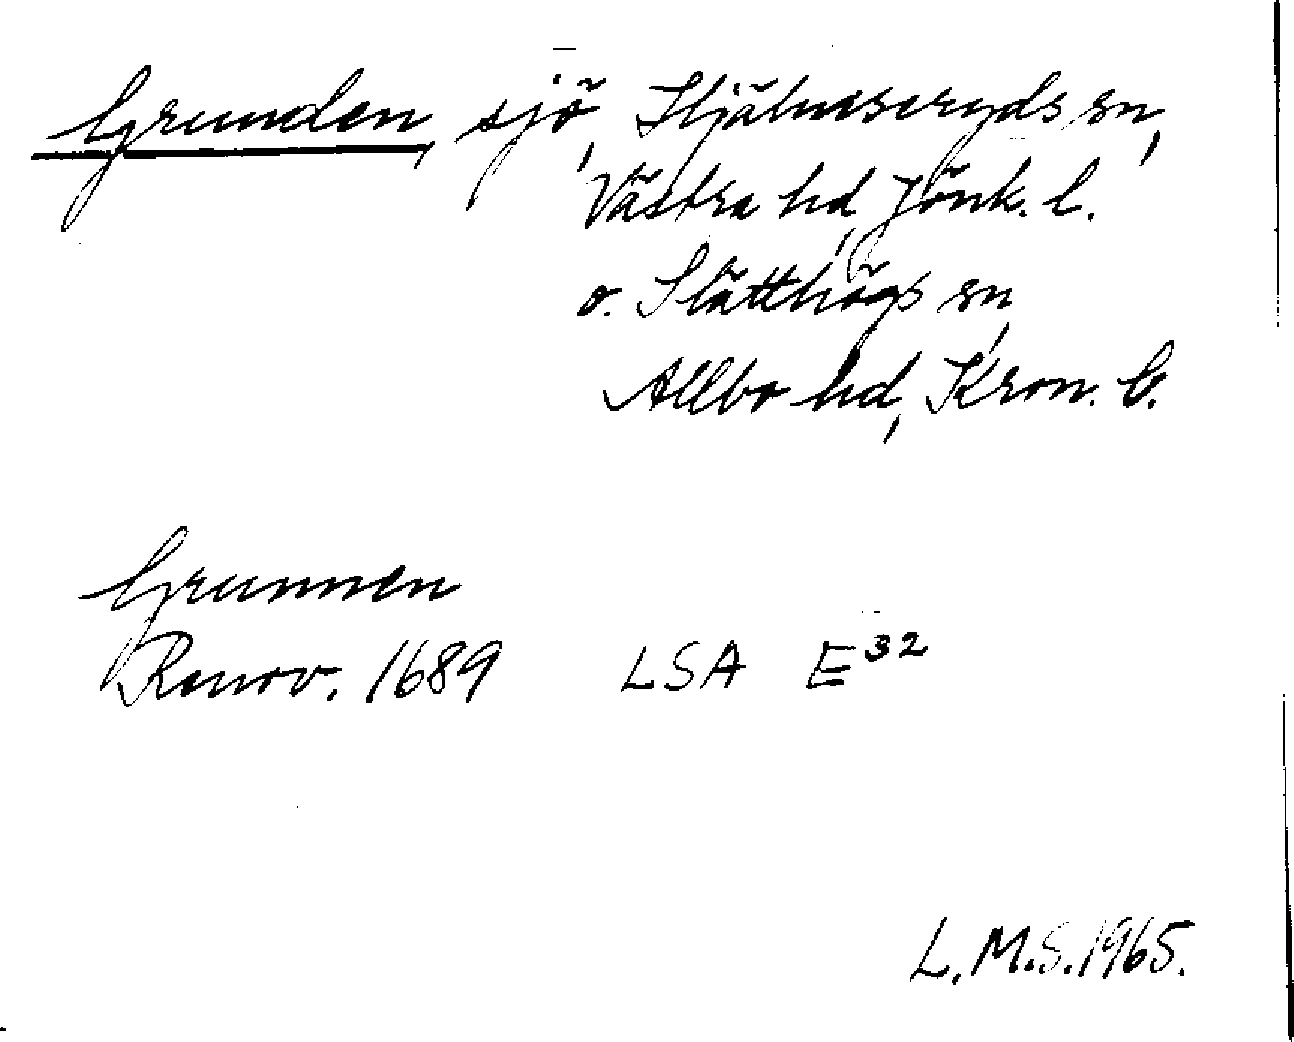 Grunden, sjö, Hjälmseryds sn,
Västra hd, Jönk. l.
o. Slätthögs sn,
Allbo hd, Kron. l.
Grunnen
Renov. 1689 LSA E³²
L.M.S. 1965.